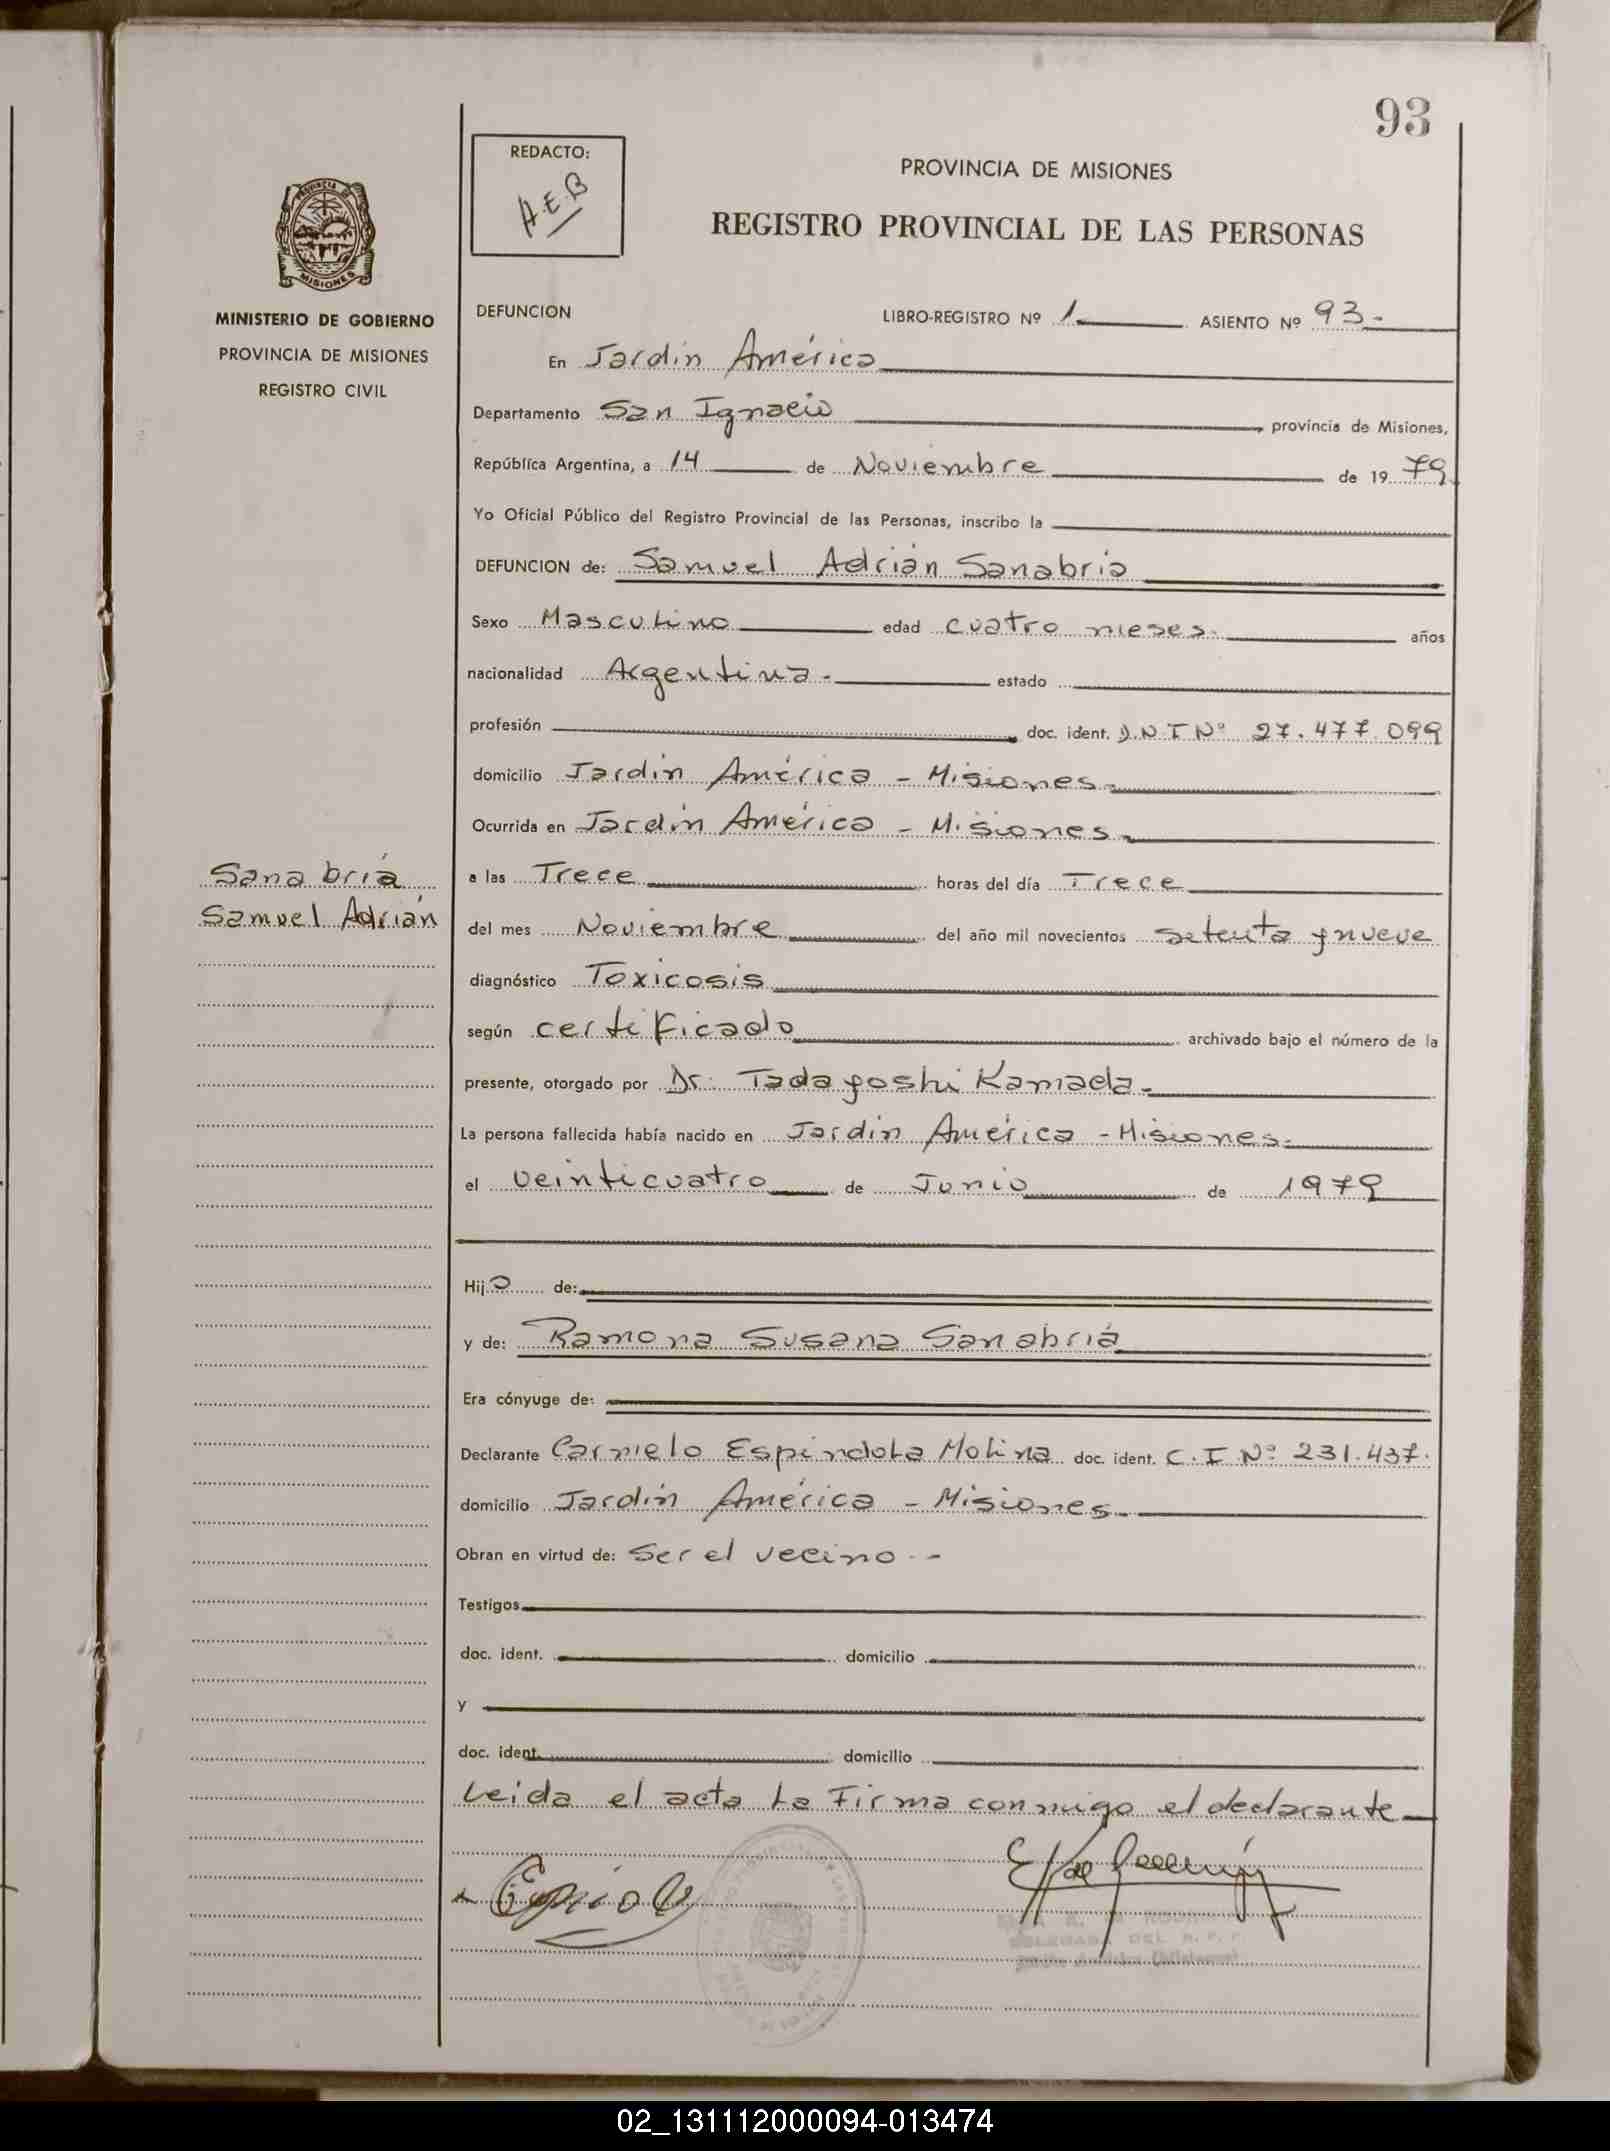 93
REDACTO:
A.E.B
PROVINCIA DE MISIONES
REGISTRO PROVINCIAL DE LAS PERSONAS
PROVINCIA DE
MISIONES
MINISTERIO DE GOBIERNO
PROVINCIA DE MISIONES
REGISTRO CIVIL
DEFUNCION LIBRO-REGISTRO Nº 1 ASIENTO Nº 93-
En Jardín América
Departamento San Ignacio provincia de Misiones,
República Argentina, a 14 de Noviembre de 1979
Yo Oficial Público del Registro Provincial de las Personas, inscribo la
DEFUNCION de: Samuel Adrián Sanabria
Sexo Masculino edad cuatro meses. años
nacionalidad Argentina- estado
profesión doc. ident. D.N.I Nº 27.477.099
domicilio Jardín América - Misiones-
Ocurrida en Jardín América - Misiones-
Sanabriá
Samuel Adrián
a las Trece horas del día Trece
del mes Noviembre del año mil novecientos setenta y nueve
diagnóstico Toxicosis
según certificado archivado bajo el número de la
presente, otorgado por Dr. Tadayoshi Kamada-
La persona fallecida había nacido en Jardín América - Misiones-
el veinticuatro de Junio de 1979
Hijo de:
y de: Ramona Susana Sanabriá
Era cónyuge de:
Declarante Carmelo Espíndola Molina doc. ident. C.I Nº 231.437.
domicilio Jardín América - Misiones-
Obran en virtud de: Ser el vecino.-
Testigos
doc. ident. domicilio
y
doc. ident. domicilio
Leída el acta la Firma conmigo el declarante
DEL R. P. P.
02_131112000094-013474